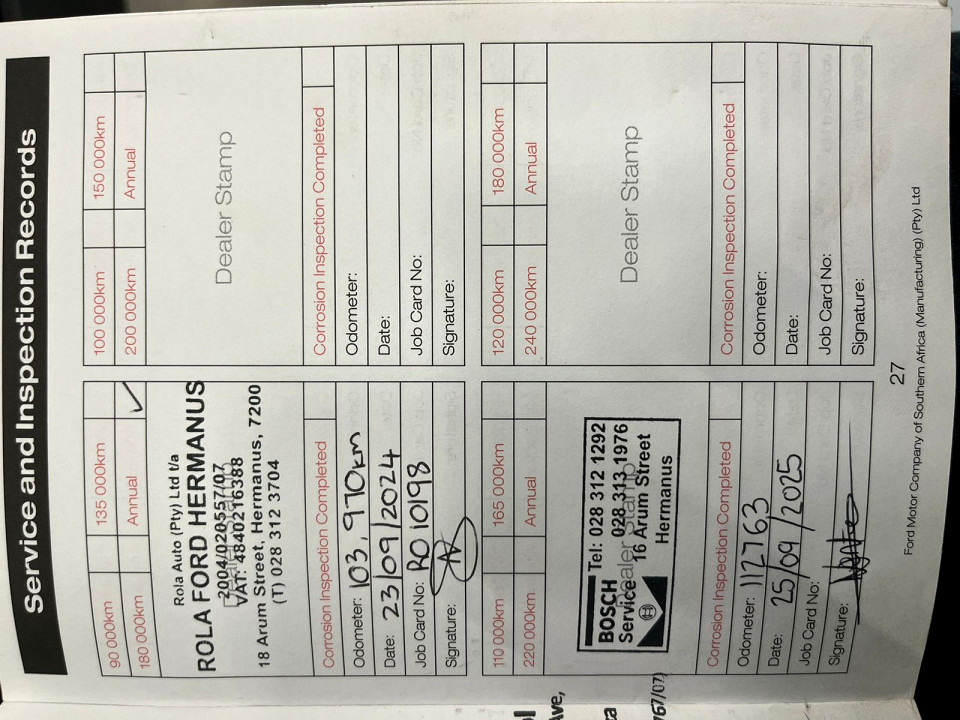 Service and Inspection Records
90 000km
135 000km
180 000km
Annual ✓
Rola Auto (Pty) Ltd t/a
ROLA FORD HERMANUS
2004/020557/07
Dealer Stamp
VAT: 4840216388
18 Arum Street, Hermanus, 7200
(T) 028 312 3704
Corrosion Inspection Completed
Odometer: 103,970km
Date: 23/09/2024
Job Card No: RO10198
Signature:
100 000km
150 000km
200 000km
Annual
Dealer Stamp
Corrosion Inspection Completed
Odometer:
Date:
Job Card No:
Signature:
110 000km
165 000km
220 000km
Annual
BOSCH
Service
Tel: 028 312 1292
028 313 1976
Dealer Stamp
16 Arum Street
Hermanus
Corrosion Inspection Completed
Odometer: 112763
Date: 25/09/2025
Job Card No:
Signature:
120 000km
180 000km
240 000km
Annual
Dealer Stamp
Corrosion Inspection Completed
Odometer:
Date:
Job Card No:
Signature:
27
Ford Motor Company of Southern Africa (Manufacturing) (Pty) Ltd
Ave,
67/07)